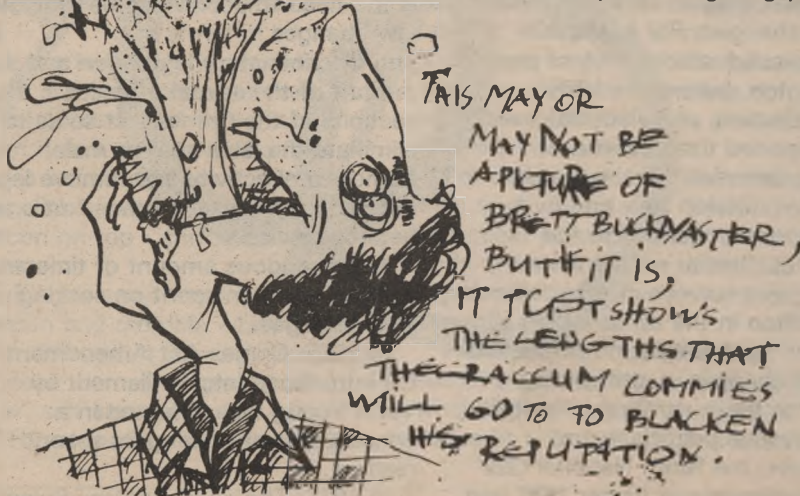 THIS MAY OR
MAY NOT BE
A PICTURE OF
BRETT BUCKMASTER,
BUT IF IT IS,
IT SHOWS
THE LENGTHS THAT
THE CRACCUM COMMIES
WILL GO TO TO BLACKEN
HIS REPUTATION.